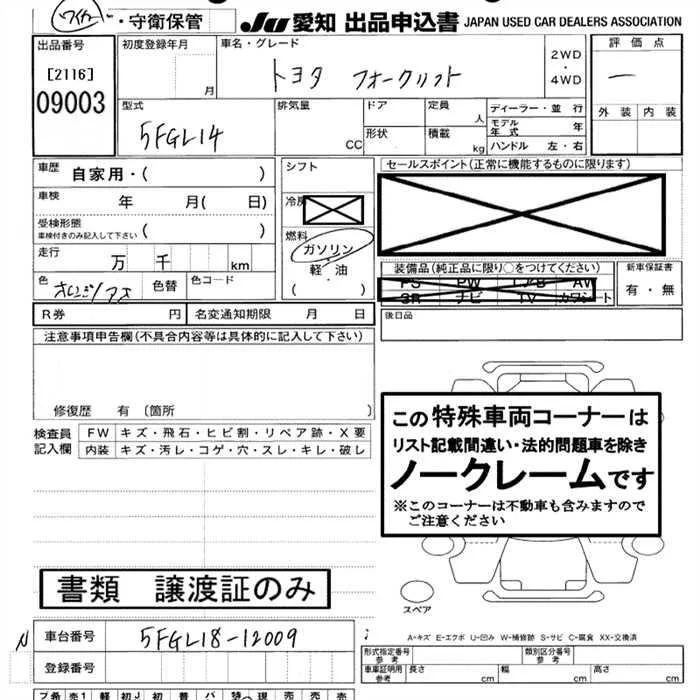 ワイカー・守衛保管 JU 愛知 出品申込書 JAPAN USED CAR DEALERS ASSOCIATION
出品番号 初度登録年月 車名・グレード 2WD・4WD 評価点
[2116] 月 トヨタ フォークリフト ー
09003
型式 排気量 ドア 定員 人 ディーラー・並行 外装 内装
5FGL14 CC 形状 積載 kg モデル年式 年
ハンドル 左・右
車歴 自家用・( ) シフト セールスポイント(正常に機能するものに限ります)
車検 年 月( 日) 冷房
受検形態 ( )
車検付きのみ記入して下さい
燃料 ガソリン
走行 万 千 km 軽・油 装備品(純正品に限り○をつけてください) 新車保証書
色 色替 色コード ( ) PS PW エアB AW 有・無
SR ナビ TV カワシート
R券 円 名変通知期限 月 日 後日品
注意事項申告欄(不具合内容等は具体的に記入して下さい)
修復歴 有〔箇所 〕
検査員記入欄 FW キズ・飛石・ヒビ割・リペア跡・X要
内装 キズ・汚レ・コゲ・穴・スレ・キレ・破レ
この特殊車両コーナーは
リスト記載間違い・法的問題車を除き
ノークレームです
※このコーナーは不動車も含みますので
ご注意ください
書類 譲渡証のみ
スペア
A-キズ E-エクボ U-凹み W-補修跡 S-サビ C-腐食 XX-交換済
N 車台番号 5FGL18-12009
登録番号
形式指定番号 参考 類別区分番号 参考
車車証明用 参考 長さ cm 幅 cm 高さ cm